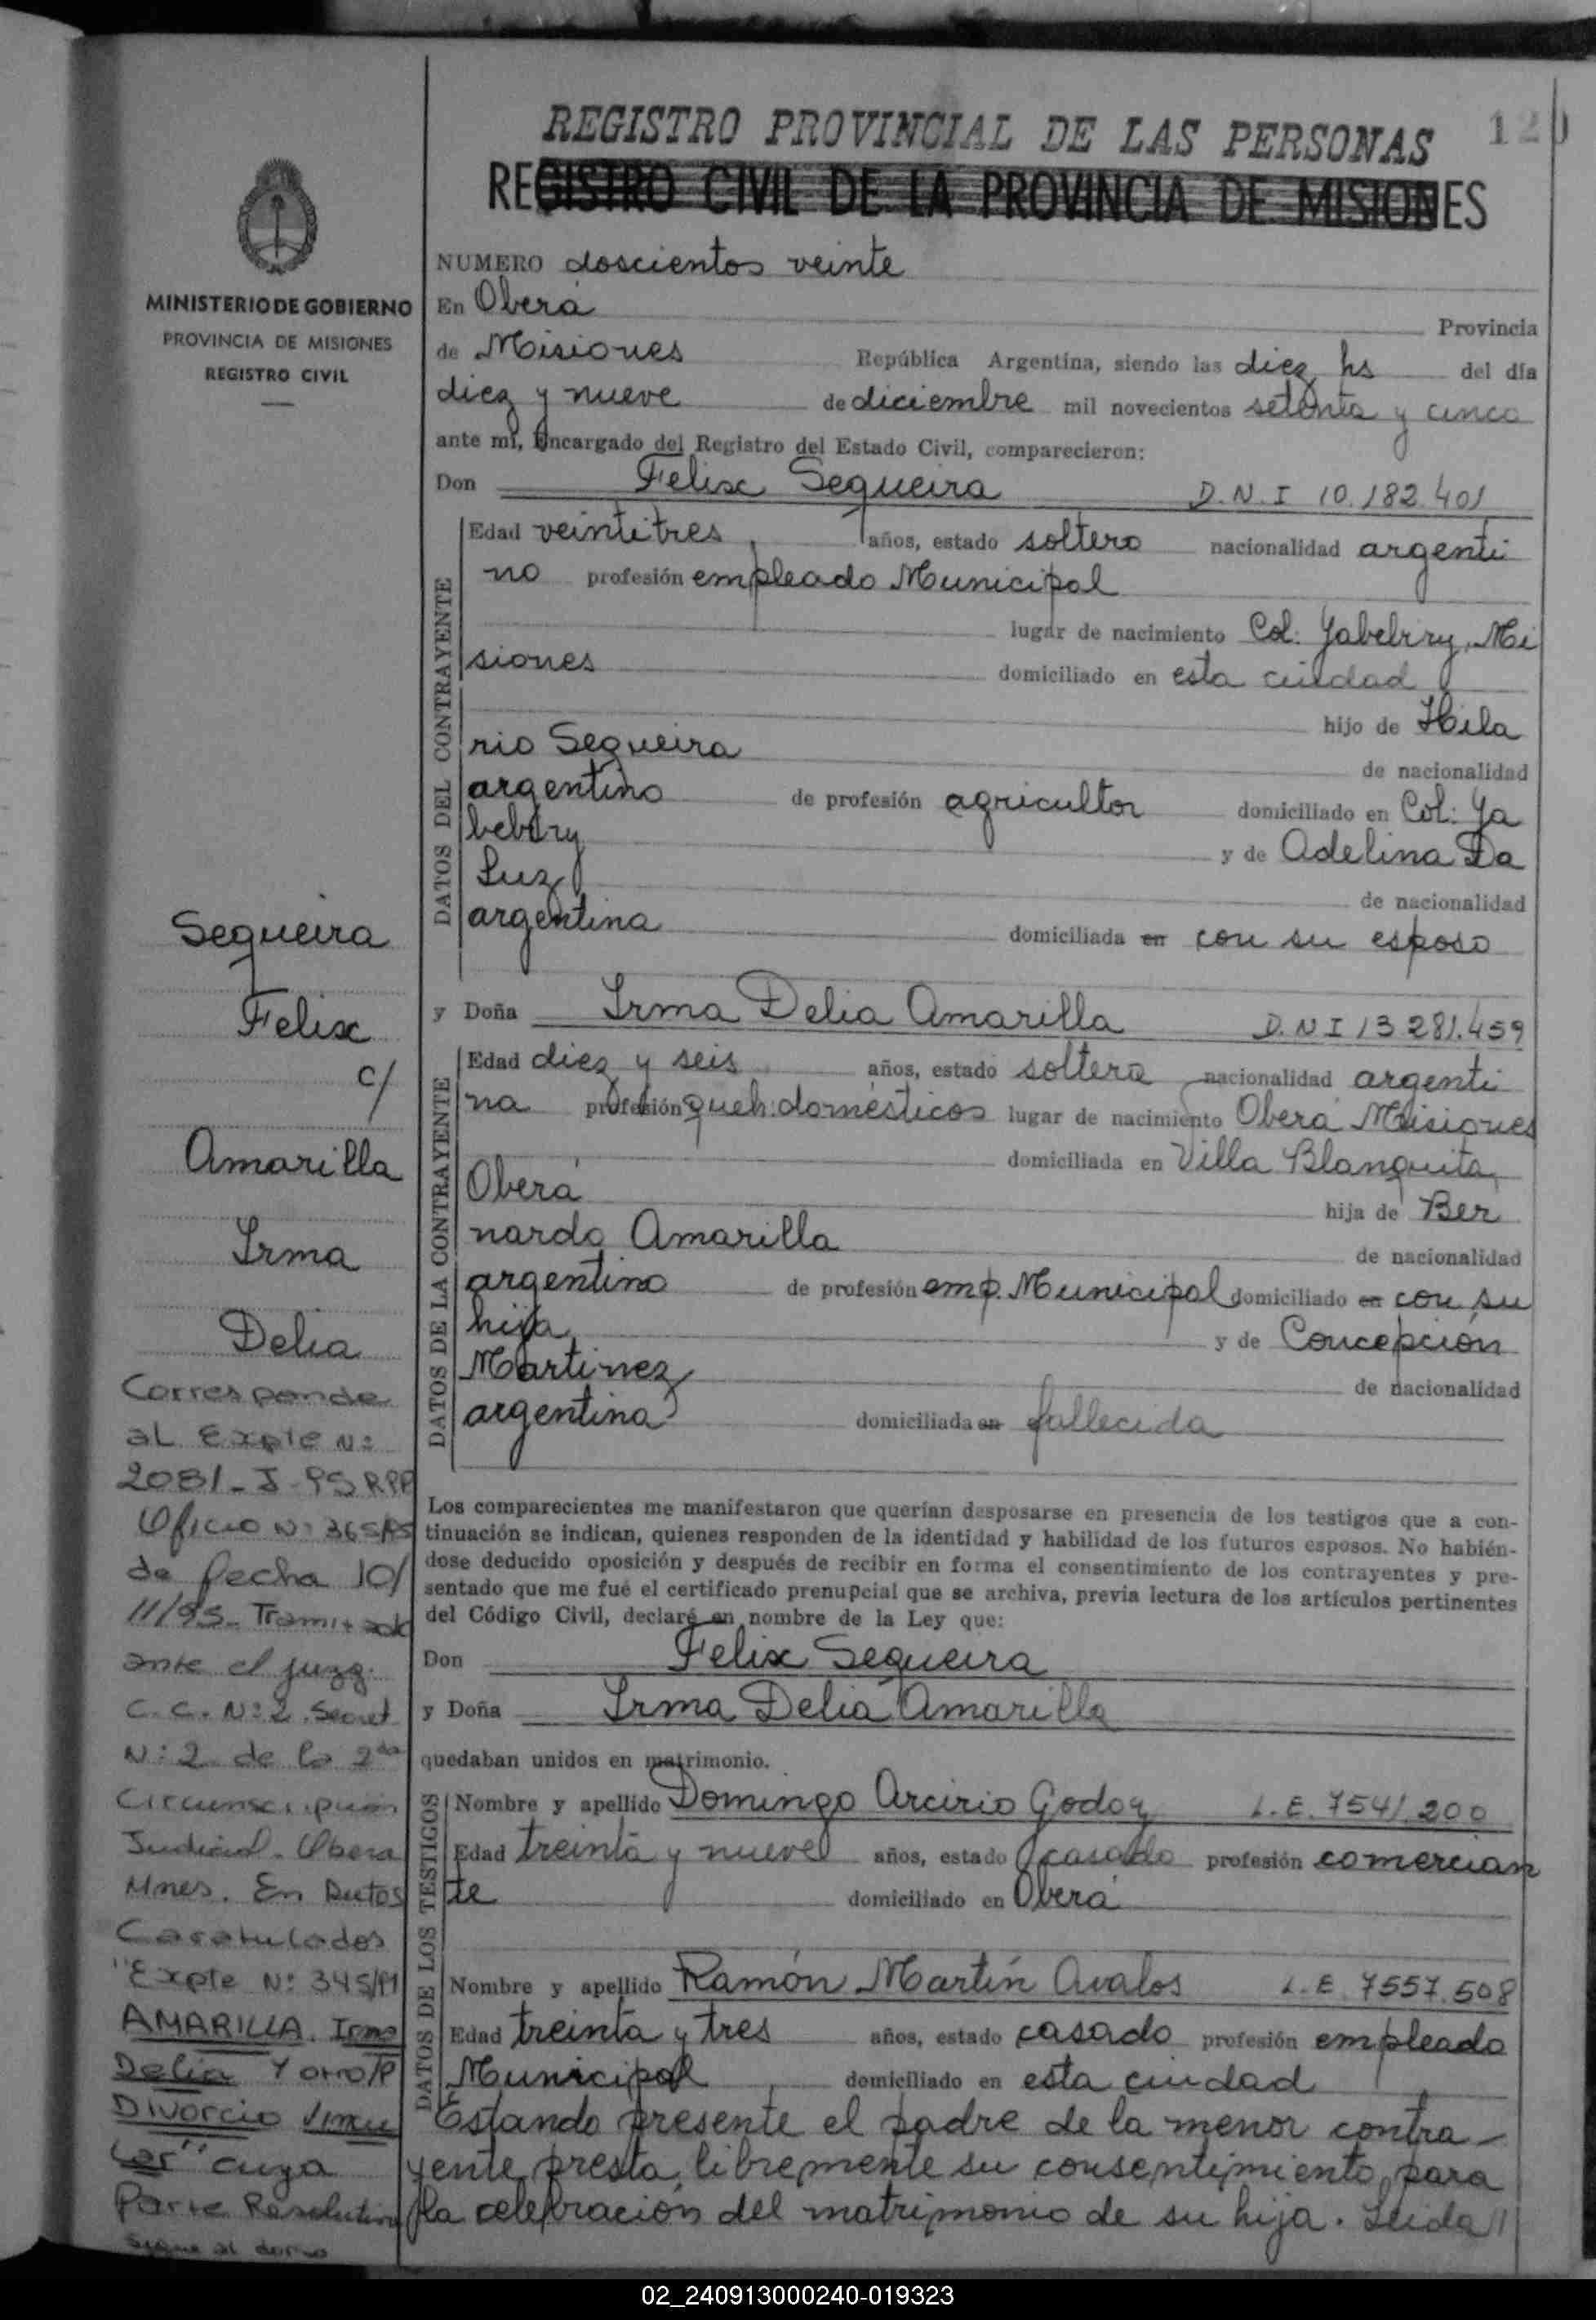 120
REGISTRO PROVINCIAL DE LAS PERSONAS
REGISTRO CIVIL DE LA PROVINCIA DE MISIONES
MINISTERIO DE GOBIERNO
PROVINCIA DE MISIONES
REGISTRO CIVIL
NUMERO doscientos veinte
En Oberá Provincia
de Misiones República Argentina, siendo las diez hs del día
diez y nueve de diciembre mil novecientos setenta y cinco
ante mí, Encargado del Registro del Estado Civil, comparecieron:
Don Felix Sequeira D.N.I 10.182.401
DATOS DEL CONTRAYENTE
Edad veintitres años, estado soltero nacionalidad argenti
no profesión empleado Municipal
lugar de nacimiento Col: Yabebiry, Mi
siones domiciliado en esta ciudad
hijo de Hila
rio Sequeira de nacionalidad
argentino de profesión agricultor domiciliado en Col: Ya
bebiry y de Adelina Da
Luz de nacionalidad
argentina domiciliada en con su esposo
y Doña Irma Delia Amarilla D.N.I 13.281.459
DATOS DE LA CONTRAYENTE
Edad diez y seis años, estado soltera nacionalidad argenti
na profesión queh: domésticos lugar de nacimiento Oberá Misiones
domiciliada en Villa Blanquita
Oberá hija de Ber
nardo Amarilla de nacionalidad
argentino de profesión emp. Municipal domiciliado en con su
hija y de Concepción
Martinez de nacionalidad
argentina domiciliada en fallecida
Los comparecientes me manifestaron que querían desposarse en presencia de los testigos que a con-
tinuación se indican, quienes responden de la identidad y habilidad de los futuros esposos. No habién-
dose deducido oposición y después de recibir en forma el consentimiento de los contrayentes y pre-
sentado que me fué el certificado prenupcial que se archiva, previa lectura de los artículos pertinentes
del Código Civil, declaré en nombre de la Ley que:
Don Felix Sequeira
y Doña Irma Delia Amarilla
quedaban unidos en matrimonio.
DATOS DE LOS TESTIGOS
Nombre y apellido Domingo Arcirio Godoy L.E. 7541.200
Edad treinta y nueve años, estado casado profesión comercian
te domiciliado en Oberá
Nombre y apellido Ramón Martín Avalos L.E. 7557.508
Edad treinta y tres años, estado casado profesión empleado
Municipal domiciliado en esta ciudad
Estando presente el padre de la menor contra-
yente presta libremente su consentimiento para
la celebración del matrimonio de su hija. Leida //
Sequeira
Felix
c/
Amarilla
Irma
Delia
Corresponde
al Expte N:
2081-J-95 RPP
Oficio N: 365/95
de fecha 10/
11/95- Tramitado
ante el Juzg.
C. C. N: 2. Secret
N: 2 de la 2da
Circunscripción
Judicial. Oberá
Mnes. En Autos
Caratulados
"Expte N: 345/91
AMARILLA. Irma
Delia Y otro/P
Divorcio Vincu
lar" cuya
Parte Resolutiva
sigue al dorso
02_240913000240-019323